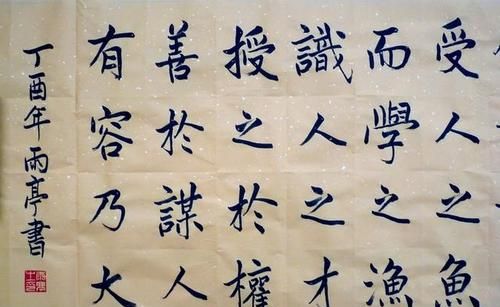 受人之魚
而學之漁
識人之才
授之於權
善於謀人
有容乃大
丁酉年雨亭書